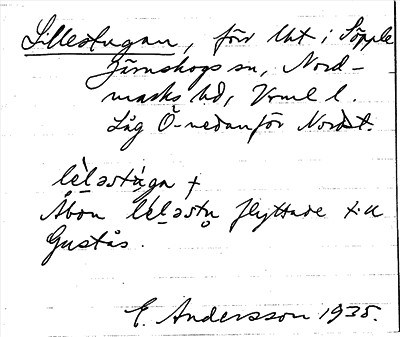 Lillestugan, förr lht i Söpple
Järnskogs sn, Nord-
marks hd, Vrml l.
Låg Ö-nedanför Nordst.
lèləstùga +
Åbon lèləstu flyttade till
Gustås.
E. Andersson 1935.